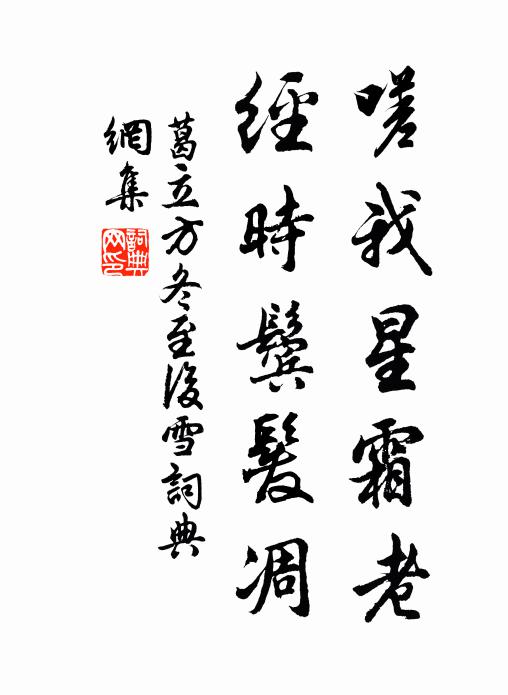 嗟我星霜老
經時鬢髮凋
葛立方冬至後雪詞典
網集
詞典網印